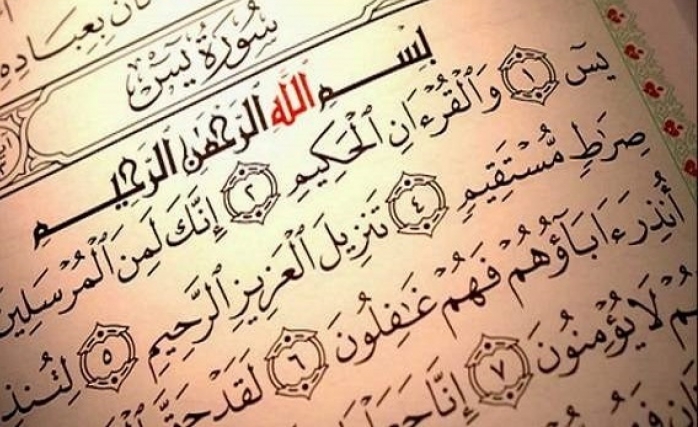 بِعِبَادِهِۦ
سُورَةُ يسٓ
بِسْمِ ٱللَّهِ ٱلرَّحْمَٰنِ ٱلرَّحِيمِ
يسٓ ١ وَٱلْقُرْءَانِ ٱلْحَكِيمِ ٢ إِنَّكَ لَمِنَ ٱلْمُرْسَلِينَ
صِرَٰطٍ مُّسْتَقِيمٍ ٤ تَنزِيلَ ٱلْعَزِيزِ ٱلرَّحِيمِ ٥ لِتُنذِ
أُنذِرَ ءَابَآؤُهُمْ فَهُمْ غَٰفِلُونَ ٦ لَقَدْ حَقَّ
لَا يُؤْمِنُونَ ٧ إِنَّا